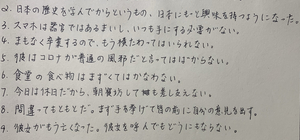 2. 日本の歴史を学んでからというもの、日本にもっと興味を持つようになった。
3. スマホは器官ではあるまいし、いつも手にする必要がない。
4. まもなく卒業するので、もう横たわってはいられない。
5. 彼はコロナが普通の風邪だと言ってはばからない。
6. 食堂の食べ物はまずくてはかなわない。
7. 今日は休日だから、朝寝坊しても差しさえない。
8. 間違ってもともとだ。まず手を挙げて皆の前に自分の意見を出す。
9. 彼女がもう亡くなった。彼女を呼んでもどうにもならない。